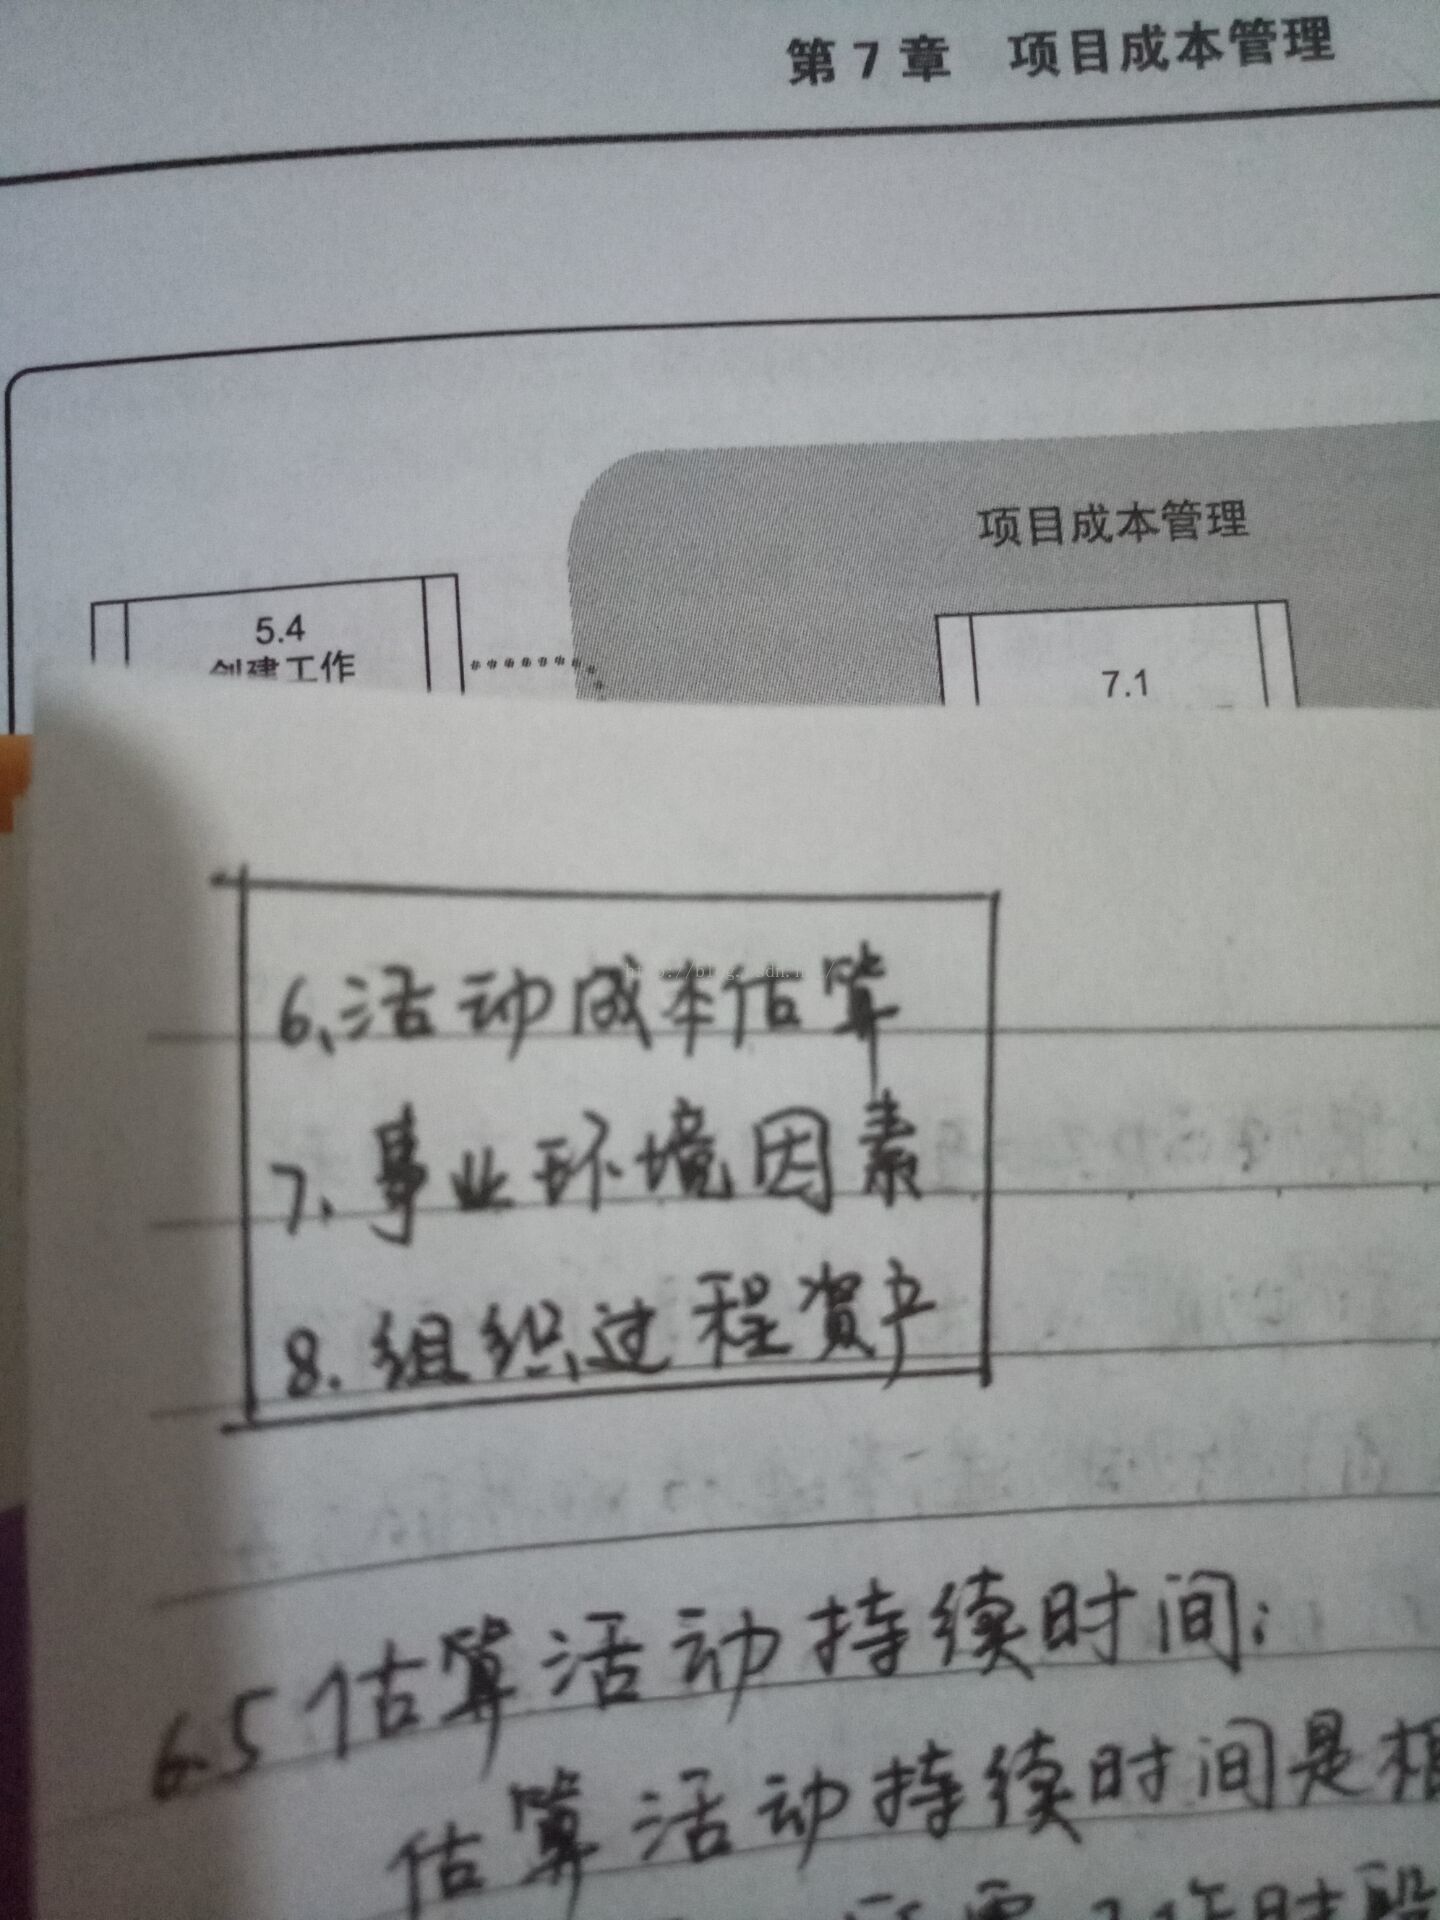 第 7 章 项目成本管理
项目成本管理
5.4
创建工作
7.1
6、活动成本估算
7. 事业环境因素
8. 组织过程资产
6.5 估算活动持续时间：
估算活动持续时间是